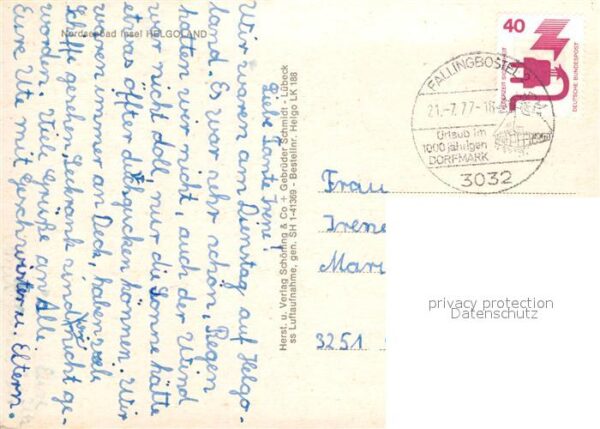 Nordseebad Insel HELGOLAND
Liebe Tante Irene!
Wir waren am Dienstag auf Helgo-
land. Es war sehr schön, Regen
hatten wir nicht, auch der Wind
war nicht doll, nur die Sonne hätte
etwas öfter gucken können. Wir
waren immer an Deck, haben viele
Schiffe gesehn, Seekrank sind wir nicht ge-
worden. Viele Grüße an Alle.
Eure Ute mit Geschwistern u. Eltern.
Herst. u. Verlag Schöning & Co + Gebrüder Schmidt - Lübeck
ss Luftaufnahme, gen. SH 1-41369 - Bestellnr. Helgo LK 188
40
UNFALLVERHÜTUNG
DEUTSCHE BUNDESPOST
FALLINGBOSTEL
21.-7.77-18
Urlaub im
1000 jährigen
DORFMARK
3032
Frau
Irene
Mari
3251
privacy protection
Datenschutz